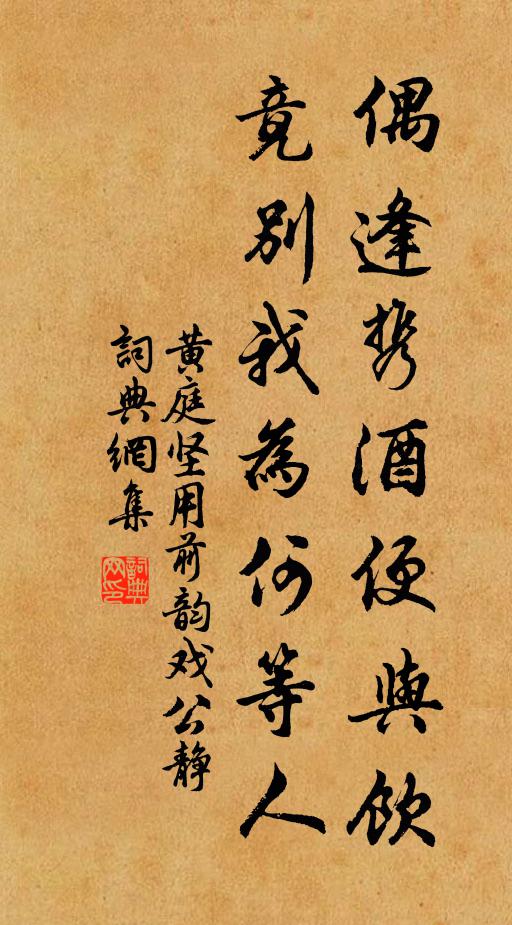 偶逢携酒便與飲
竟別我為何等人
黄庭坚用前韵戏公静
詞典網集
詞典網印